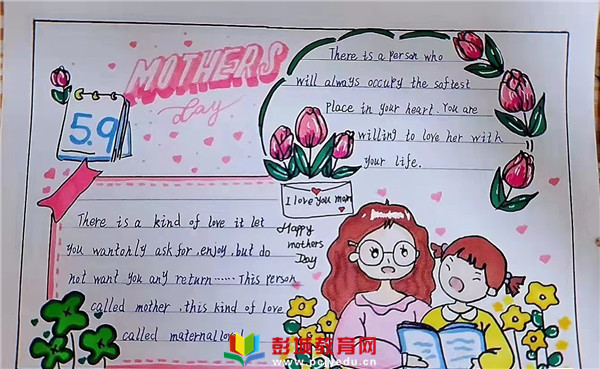 MOTHERS
day
5.9
There is a person who
will always occupy the softest
place in your heart. You are
willing to love her with
your life.
I love you mam
Happy
mothers
Day
There is a kind of love it let
you wantonly ask for, enjoy, but do
not want you any return ······ This person
called mother, this kind of love
called maternal love!
彭城教育网
www.pcwedu.cn